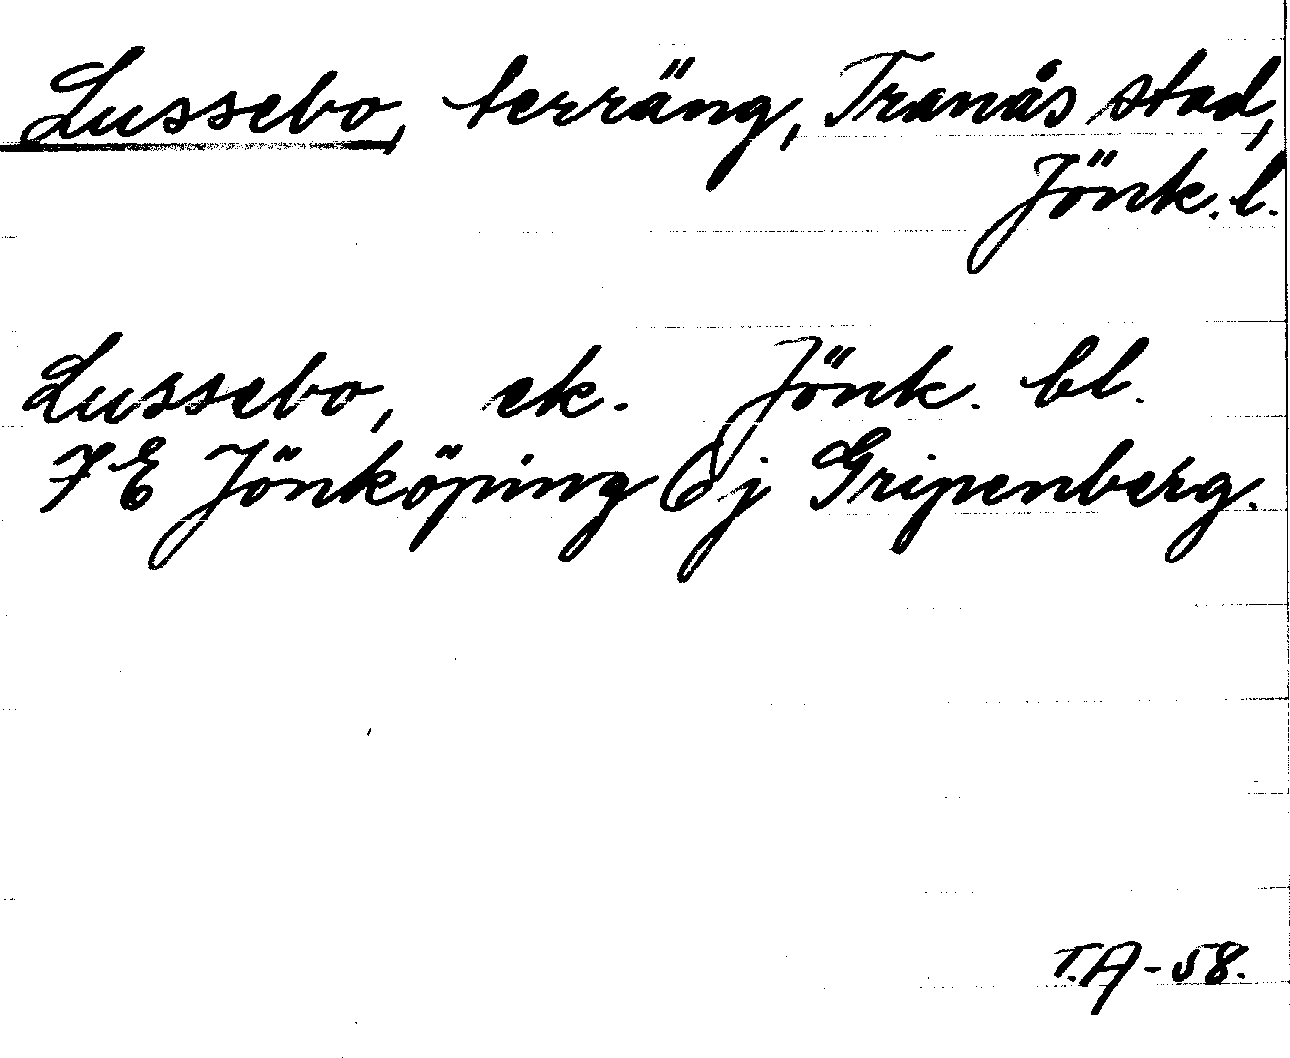 Lussebo, terräng, Tranås stad,
Jönk. l.
Lussebo, ek. Jönk. bl.
7 E Jönköping Öj Gripenberg.
T.A-58.